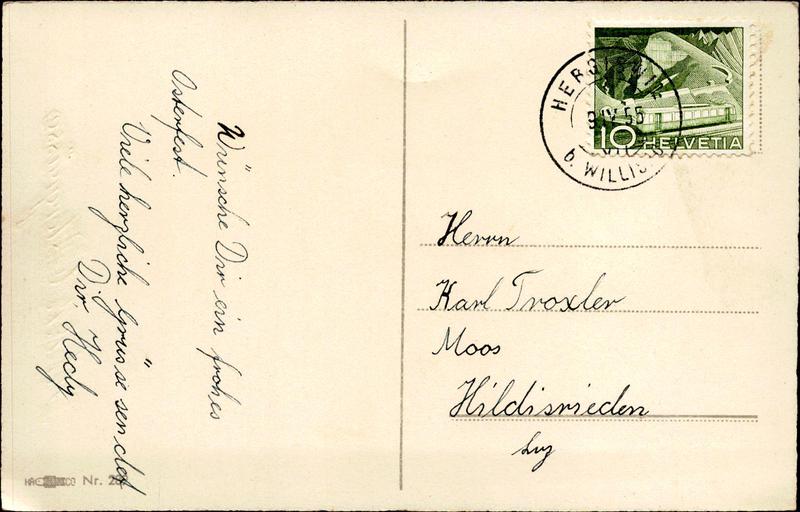 Wünsche Dir ein frohes
Osterfest.
Viele herzliche Grüsse sendet
Dir. Hedy
Nr.
9.IV.55
b. WILLIS
10 HELVETIA
Herrn
Karl Troxler
Moos
Hildisrieden
Luz